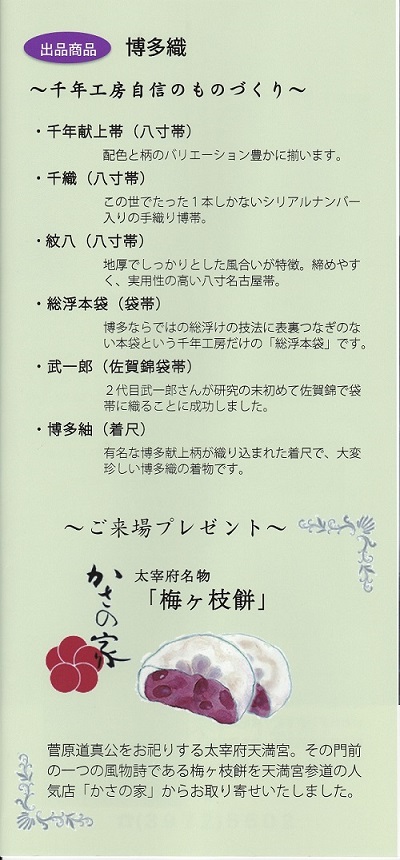 出品商品　博多織
～千年工房自信のものづくり～
・千年献上帯（八寸帯）
配色と柄のバリエーション豊かに揃います。
・千織（八寸帯）
この世でたった１本しかないシリアルナンバー
入りの手織り博帯。
・紋八（八寸帯）
地厚でしっかりとした風合いが特徴。締めやす
く、実用性の高い八寸名古屋帯。
・総浮本袋（袋帯）
博多ならではの総浮けの技法に表裏つなぎのな
い本袋という千年工房だけの「総浮本袋」です。
・武一郎（佐賀錦袋帯）
２代目武一郎さんが研究の末初めて佐賀錦で袋
帯に織ることに成功しました。
・博多紬（着尺）
有名な博多献上柄が織り込まれた着尺で、大変
珍しい博多織の着物です。
～ご来場プレゼント～
かさの家
太宰府名物
「梅ヶ枝餅」
菅原道真公をお祀りする太宰府天満宮。その門前
の一つの風物詩である梅ヶ枝餅を天満宮参道の人
気店「かさの家」からお取り寄せいたしました。